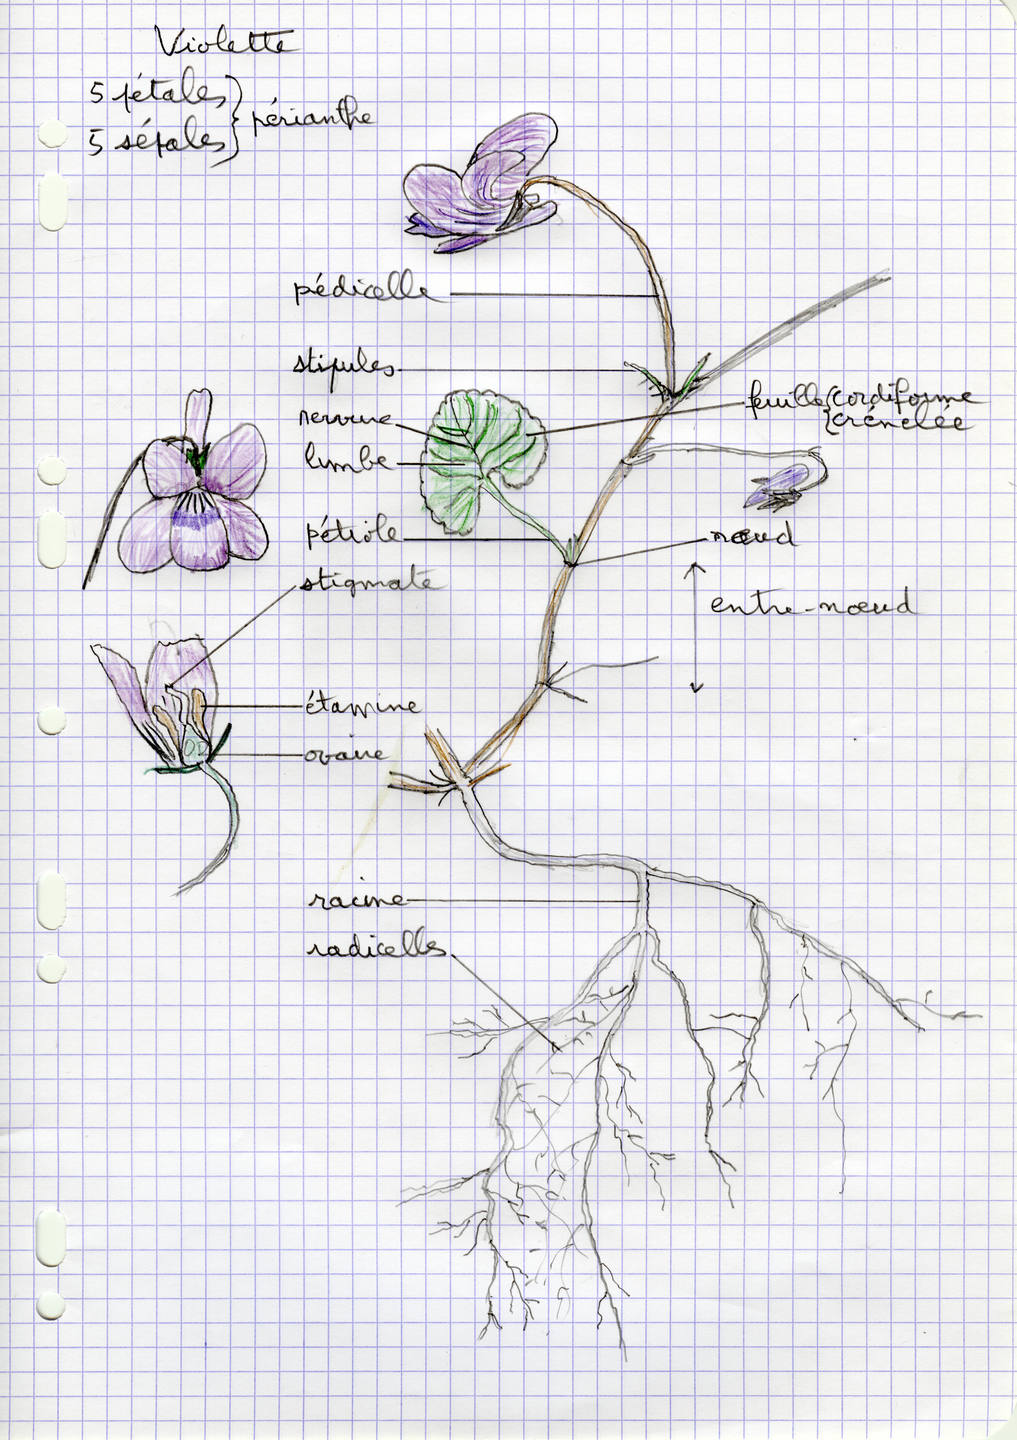 Violette
5 pétales
5 sépales
périanthe
pédicelle
stipules
nervure
feuille
cordiforme
crénelée
limbe
pétiole
nœud
stigmate
entre-nœud
étamine
ovaire
racine
radicelles